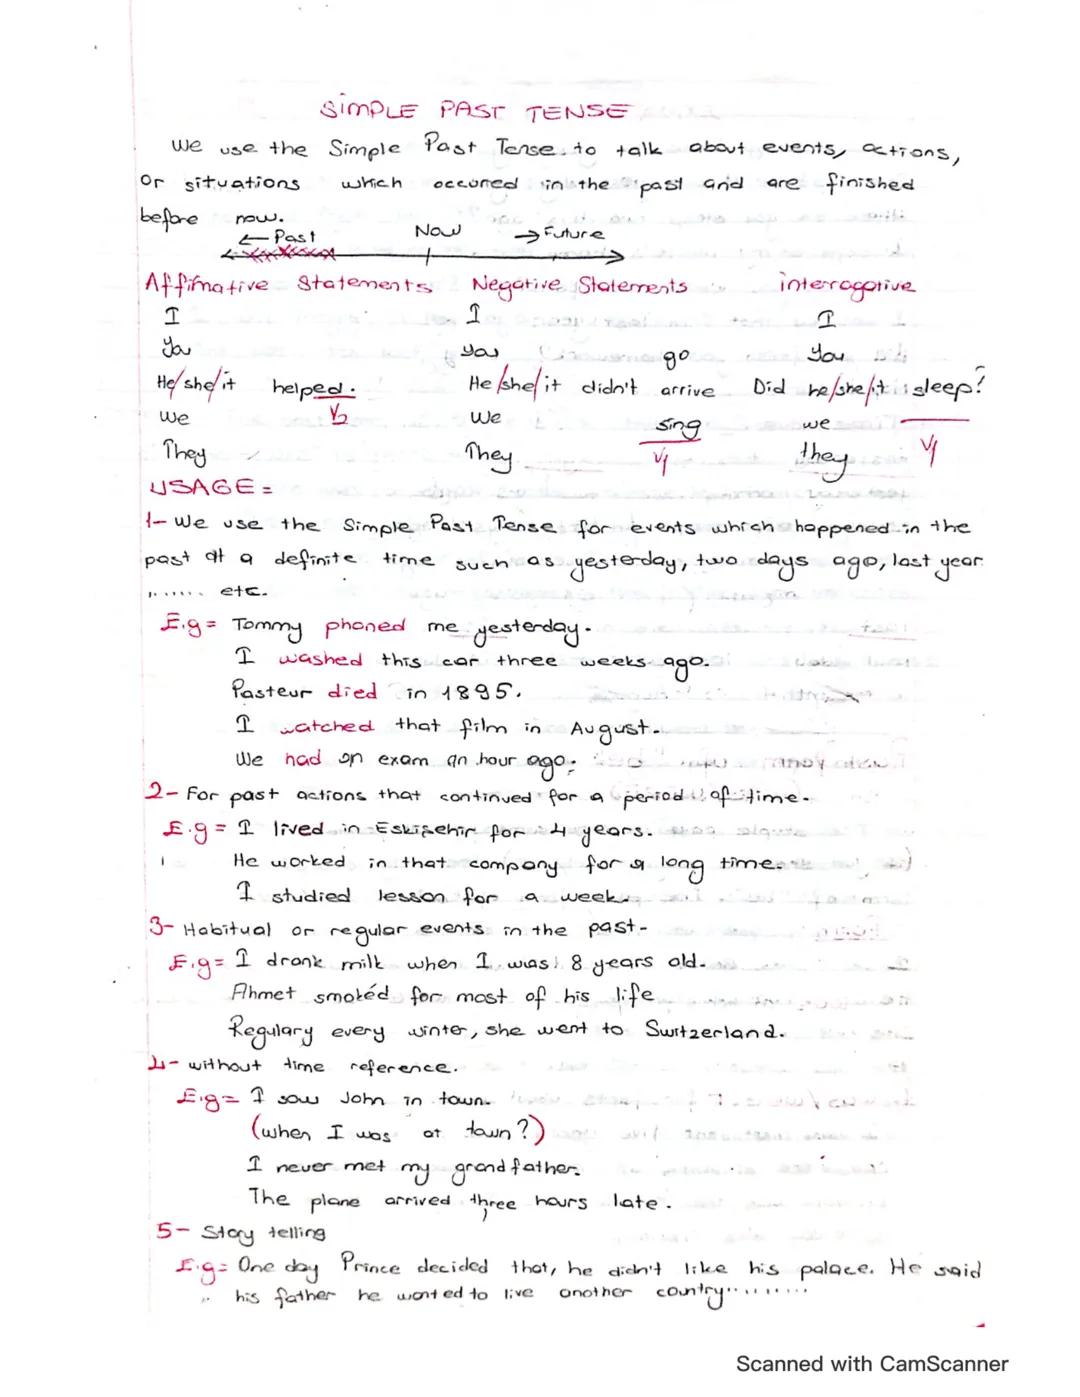 SIMPLE PAST TENSE
We use the Simple Past Tense to talk about events, actions,
or situations which occured in the past and are finished
before now.
← Past Now → Future
Affimative Statements Negative Statements interrogative
I I I
You You go You
He/she/it helped. He/she/it didn't arrive Did he/she/it sleep?
We V2 We sing we
They They V1 they V1
USAGE =
1- We use the Simple Past Tense for events which happened in the
past at a definite time such as yesterday, two days ago, last year
....... etc.
E.g = Tommy phoned me yesterday.
I washed this car three weeks ago.
Pasteur died in 1895.
I watched that film in August.
We had an exam an hour ago.
2- For past actions that continued for a period of time.
E.g = I lived in Eskişehir for 4 years.
He worked in that company for a long time.
I studied lesson for a week.
3- Habitual or regular events in the past-
E.g = I drank milk when I was 8 years old.
Ahmet smoked for most of his life
Regulary every winter, she went to Switzerland.
4- without time reference.
E.g = I saw John in town.
(when I was at town?)
I never met my grandfather.
The plane arrived three hours late.
5- Story telling
E.g = One day Prince decided that, he didn't like his palace. He said
his father he wanted to live another country.........
Scanned with CamScanner